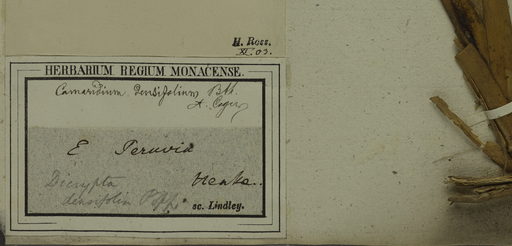 H. Ross.
XI. 03.
HERBARIUM REGIUM MONACENSE.
Camaridium densifolium
E Peruvia
Dicrypta
densifolia Pöpp.
sc. Lindley.